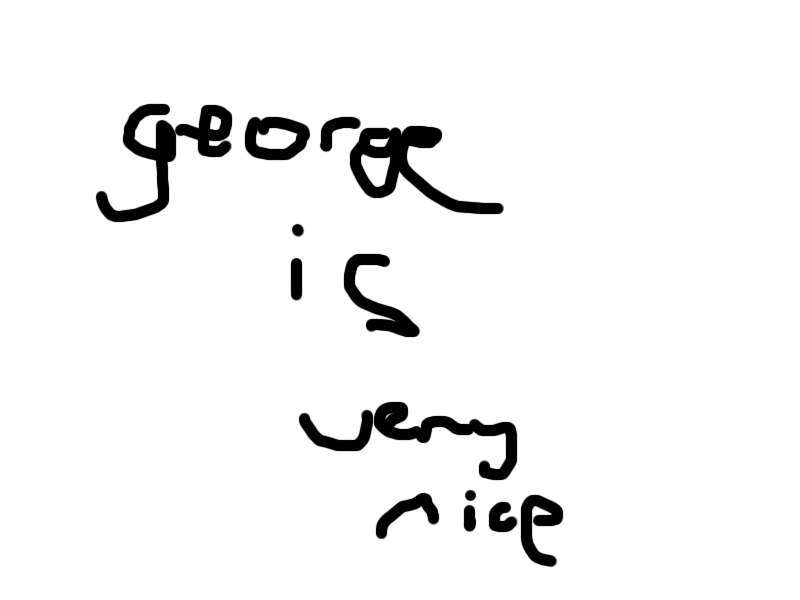 george
is
very
nice